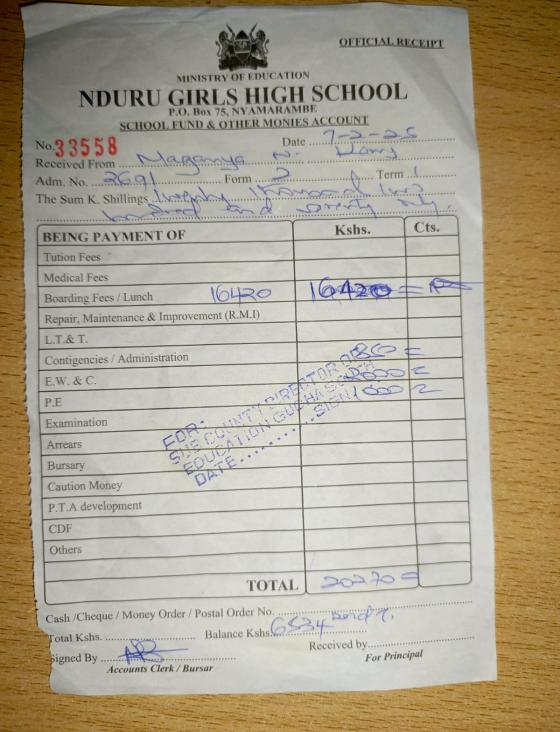 OFFICIAL RECEIPT
MINISTRY OF EDUCATION
NDURU GIRLS HIGH SCHOOL
P.O. Box 75, NYAMARAMBE
SCHOOL FUND & OTHER MONIES ACCOUNT
No. 33558 Date 7-2-25
Received From N.
Adm. No. 2691 Form 2 Term 1
The Sum K. Shillings Twenty thousand two
hundred and seventy only.
BEING PAYMENT OF Kshs. Cts.
Tuition Fees
Medical Fees
Boarding Fees / Lunch 16420 16420 =
Repair, Maintenance & Improvement (R.M.I)
L.T.& T.
Contigencies / Administration 850 =
E.W. & C. 2000 =
P.E 1000 =
Examination
Arrears
Bursary
Caution Money
P.T.A development
CDF
Others
FOR:
SUB COUNTY DIRECTOR OF
EDUCATION GUCHA SOUTH
DATE SIGN
TOTAL 20270 =
Cash /Cheque / Money Order / Postal Order No.
Total Kshs. Balance Kshs. 6534
Signed By Received by
Accounts Clerk / Bursar For Principal